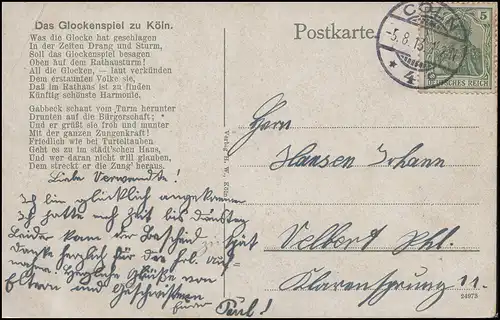 Das Glockenspiel zu Köln.
Was die Glocke hat geschlagen
In der Zeiten Drang und Sturm,
Soll das Glockenspiel besagen
Oben auf dem Rathausturm!
All die Glocken, — laut verkünden
Dem erstaunten Volke sie,
Daß im Rathaus ist zu finden
Künftig schönste Harmonie.
Gabbeck schaut vom Turm herunter
Drunten auf die Bürgerschaft;
Und er grüßt sie froh und munter
Mit der ganzen Zungenkraft!
Friedlich wie bei Turteltauben
Geht es zu im städt'schen Haus,
Und wer daran nicht will glauben,
Dem streckt er die Zung' heraus.
Liebe Verwandte!
Ich bin glücklich angekommen
Ich hatte noch Zeit bis Dienstag
Leider kam der Bescheid spät
Danke herzlich für
Herzliche Grüße von
Eltern und Geschwistern
Paul!
Postkarte.
CÖLN
-5.8.13
* 4
5
DEUTSCHES REICH
Herrn
Hansen Johann
Velbert Rhl.
Klarensprung 11.
24973